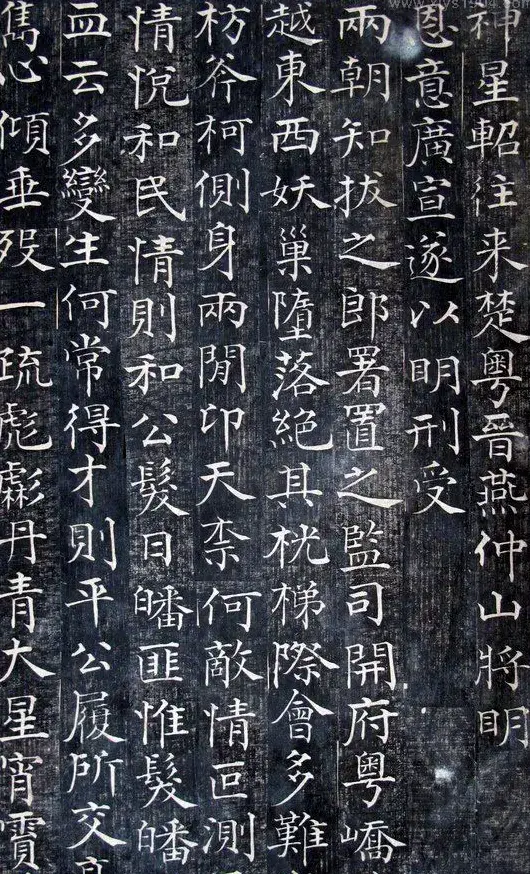 神星軺往来楚粤晉燕仲山將明
恩意廣宣遂以明刑受
兩朝知拔之郎署置之監司開府粤嶠
越東西妖巢墮落絕其桄梯際會多難
枋斧柯側身兩間卬天柰何敵情叵測
情悅和民情則和公髮日皤匪惟髮皤
血云多變生何常得才則平公履所交
雋心傾垂歿一疏彪彪丹青大星宵